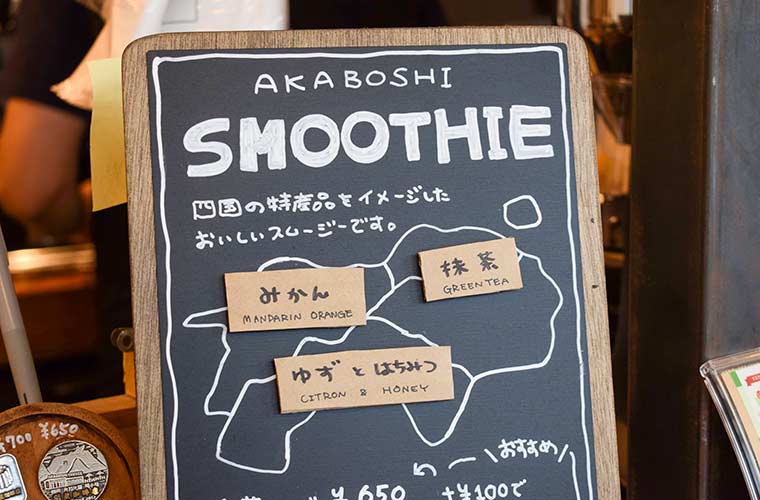 AKABOSHI
SMOOTHIE
四国の特産品をイメージした
おいしいスムージーです。
抹茶
GREEN TEA
みかん
MANDARIN ORANGE
ゆずとはちみつ
CITRON & HONEY
\おすすめ/
¥650
+¥100で
¥700 ¥650